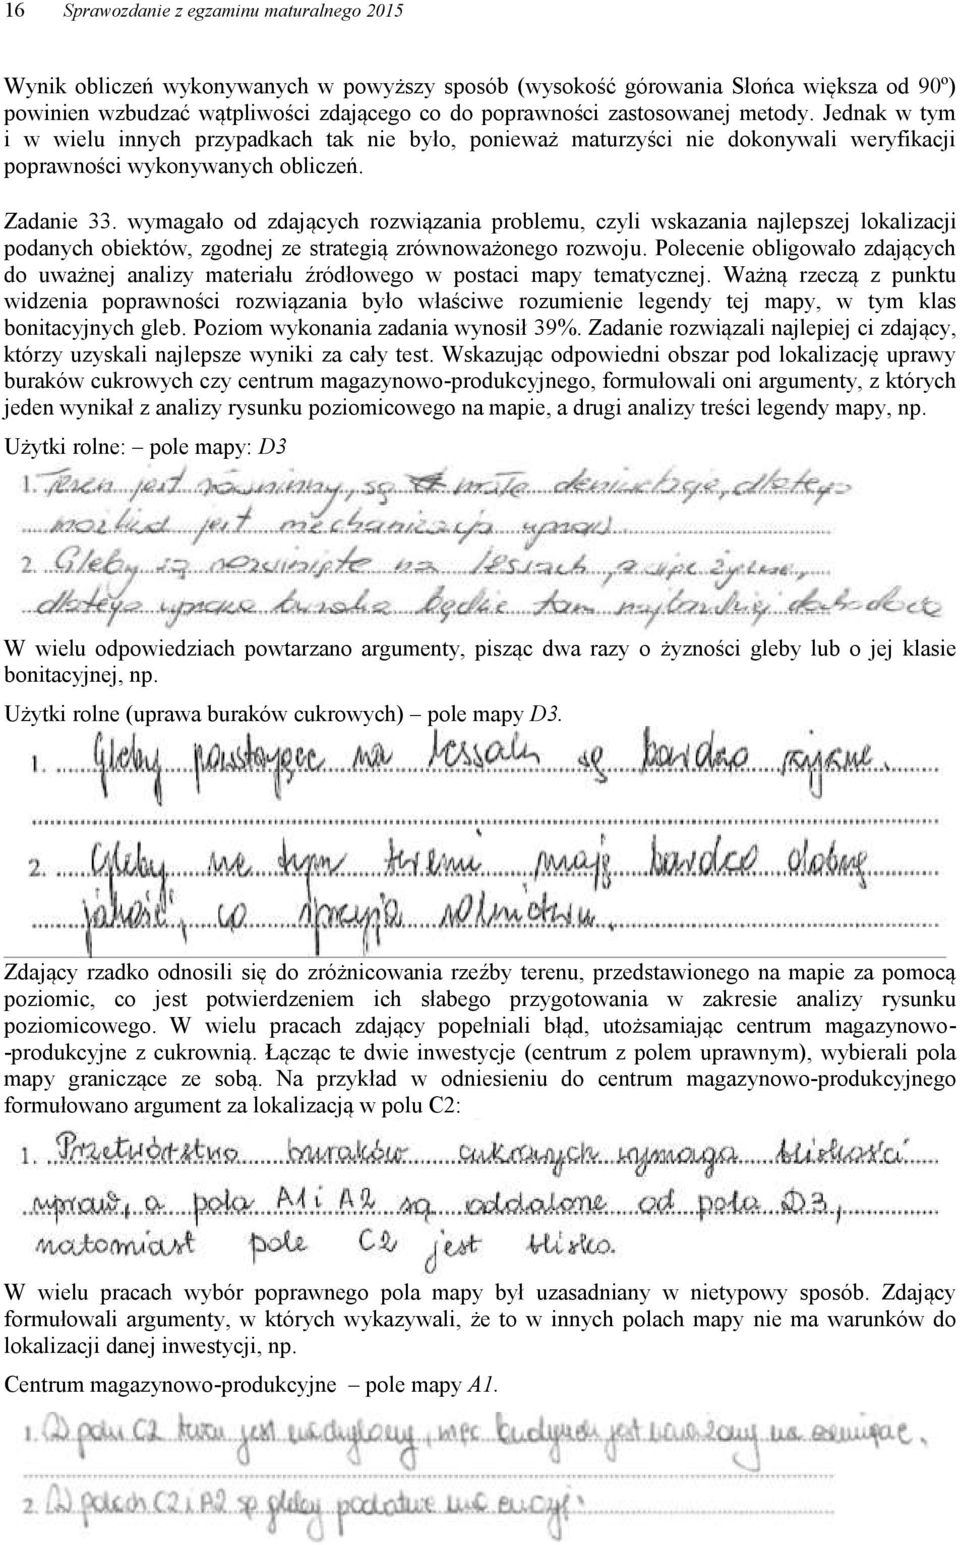 16 Sprawozdanie z egzaminu maturalnego 2015
Wynik obliczeń wykonywanych w powyższy sposób (wysokość górowania Słońca większa od 90º)
powinien wzbudzać wątpliwości zdającego co do poprawności zastosowanej metody. Jednak w tym
i w wielu innych przypadkach tak nie było, ponieważ maturzyści nie dokonywali weryfikacji
poprawności wykonywanych obliczeń.
Zadanie 33. wymagało od zdających rozwiązania problemu, czyli wskazania najlepszej lokalizacji
podanych obiektów, zgodnej ze strategią zrównoważonego rozwoju. Polecenie obligowało zdających
do uważnej analizy materiału źródłowego w postaci mapy tematycznej. Ważną rzeczą z punktu
widzenia poprawności rozwiązania było właściwe rozumienie legendy tej mapy, w tym klas
bonitacyjnych gleb. Poziom wykonania zadania wynosił 39%. Zadanie rozwiązali najlepiej ci zdający,
którzy uzyskali najlepsze wyniki za cały test. Wskazując odpowiedni obszar pod lokalizację uprawy
buraków cukrowych czy centrum magazynowo-produkcyjnego, formułowali oni argumenty, z których
jeden wynikał z analizy rysunku poziomicowego na mapie, a drugi analizy treści legendy mapy, np.
Użytki rolne: – pole mapy: D3
1. Teren jest równinny, są małe deniwelacje, dlatego
możliwa jest mechanizacja upraw.
2. Gleby są rozwinięte na lessach, a więc żyzne,
dlatego uprawa buraka będzie tam najbardziej dochodowa
W wielu odpowiedziach powtarzano argumenty, pisząc dwa razy o żyzności gleby lub o jej klasie
bonitacyjnej, np.
Użytki rolne (uprawa buraków cukrowych) – pole mapy D3.
1. Gleby powstające na lessach są bardzo żyzne.
2. Gleby na tym terenie mają bardzo dobrą
jakość, co sprzyja rolnictwu.
Zdający rzadko odnosili się do zróżnicowania rzeźby terenu, przedstawionego na mapie za pomocą
poziomic, co jest potwierdzeniem ich słabego przygotowania w zakresie analizy rysunku
poziomicowego. W wielu pracach zdający popełniali błąd, utożsamiając centrum magazynowo-
-produkcyjne z cukrownią. Łącząc te dwie inwestycje (centrum z polem uprawnym), wybierali pola
mapy graniczące ze sobą. Na przykład w odniesieniu do centrum magazynowo-produkcyjnego
formułowano argument za lokalizacją w polu C2:
1. Przetwórstwo buraków cukrowych wymaga bliskości
upraw, a pola A1 i A2 są oddalone od pola D3,
natomiast pole C2 jest blisko.
W wielu pracach wybór poprawnego pola mapy był uzasadniany w nietypowy sposób. Zdający
formułowali argumenty, w których wykazywali, że to w innych polach mapy nie ma warunków do
lokalizacji danej inwestycji, np.
Centrum magazynowo-produkcyjne – pole mapy A1.
1. W polu C2 teren jest nachylony, więc budynek jest narażony na osunięcie.
2. W polach C2 i A2 są gleby podatne na erozję.